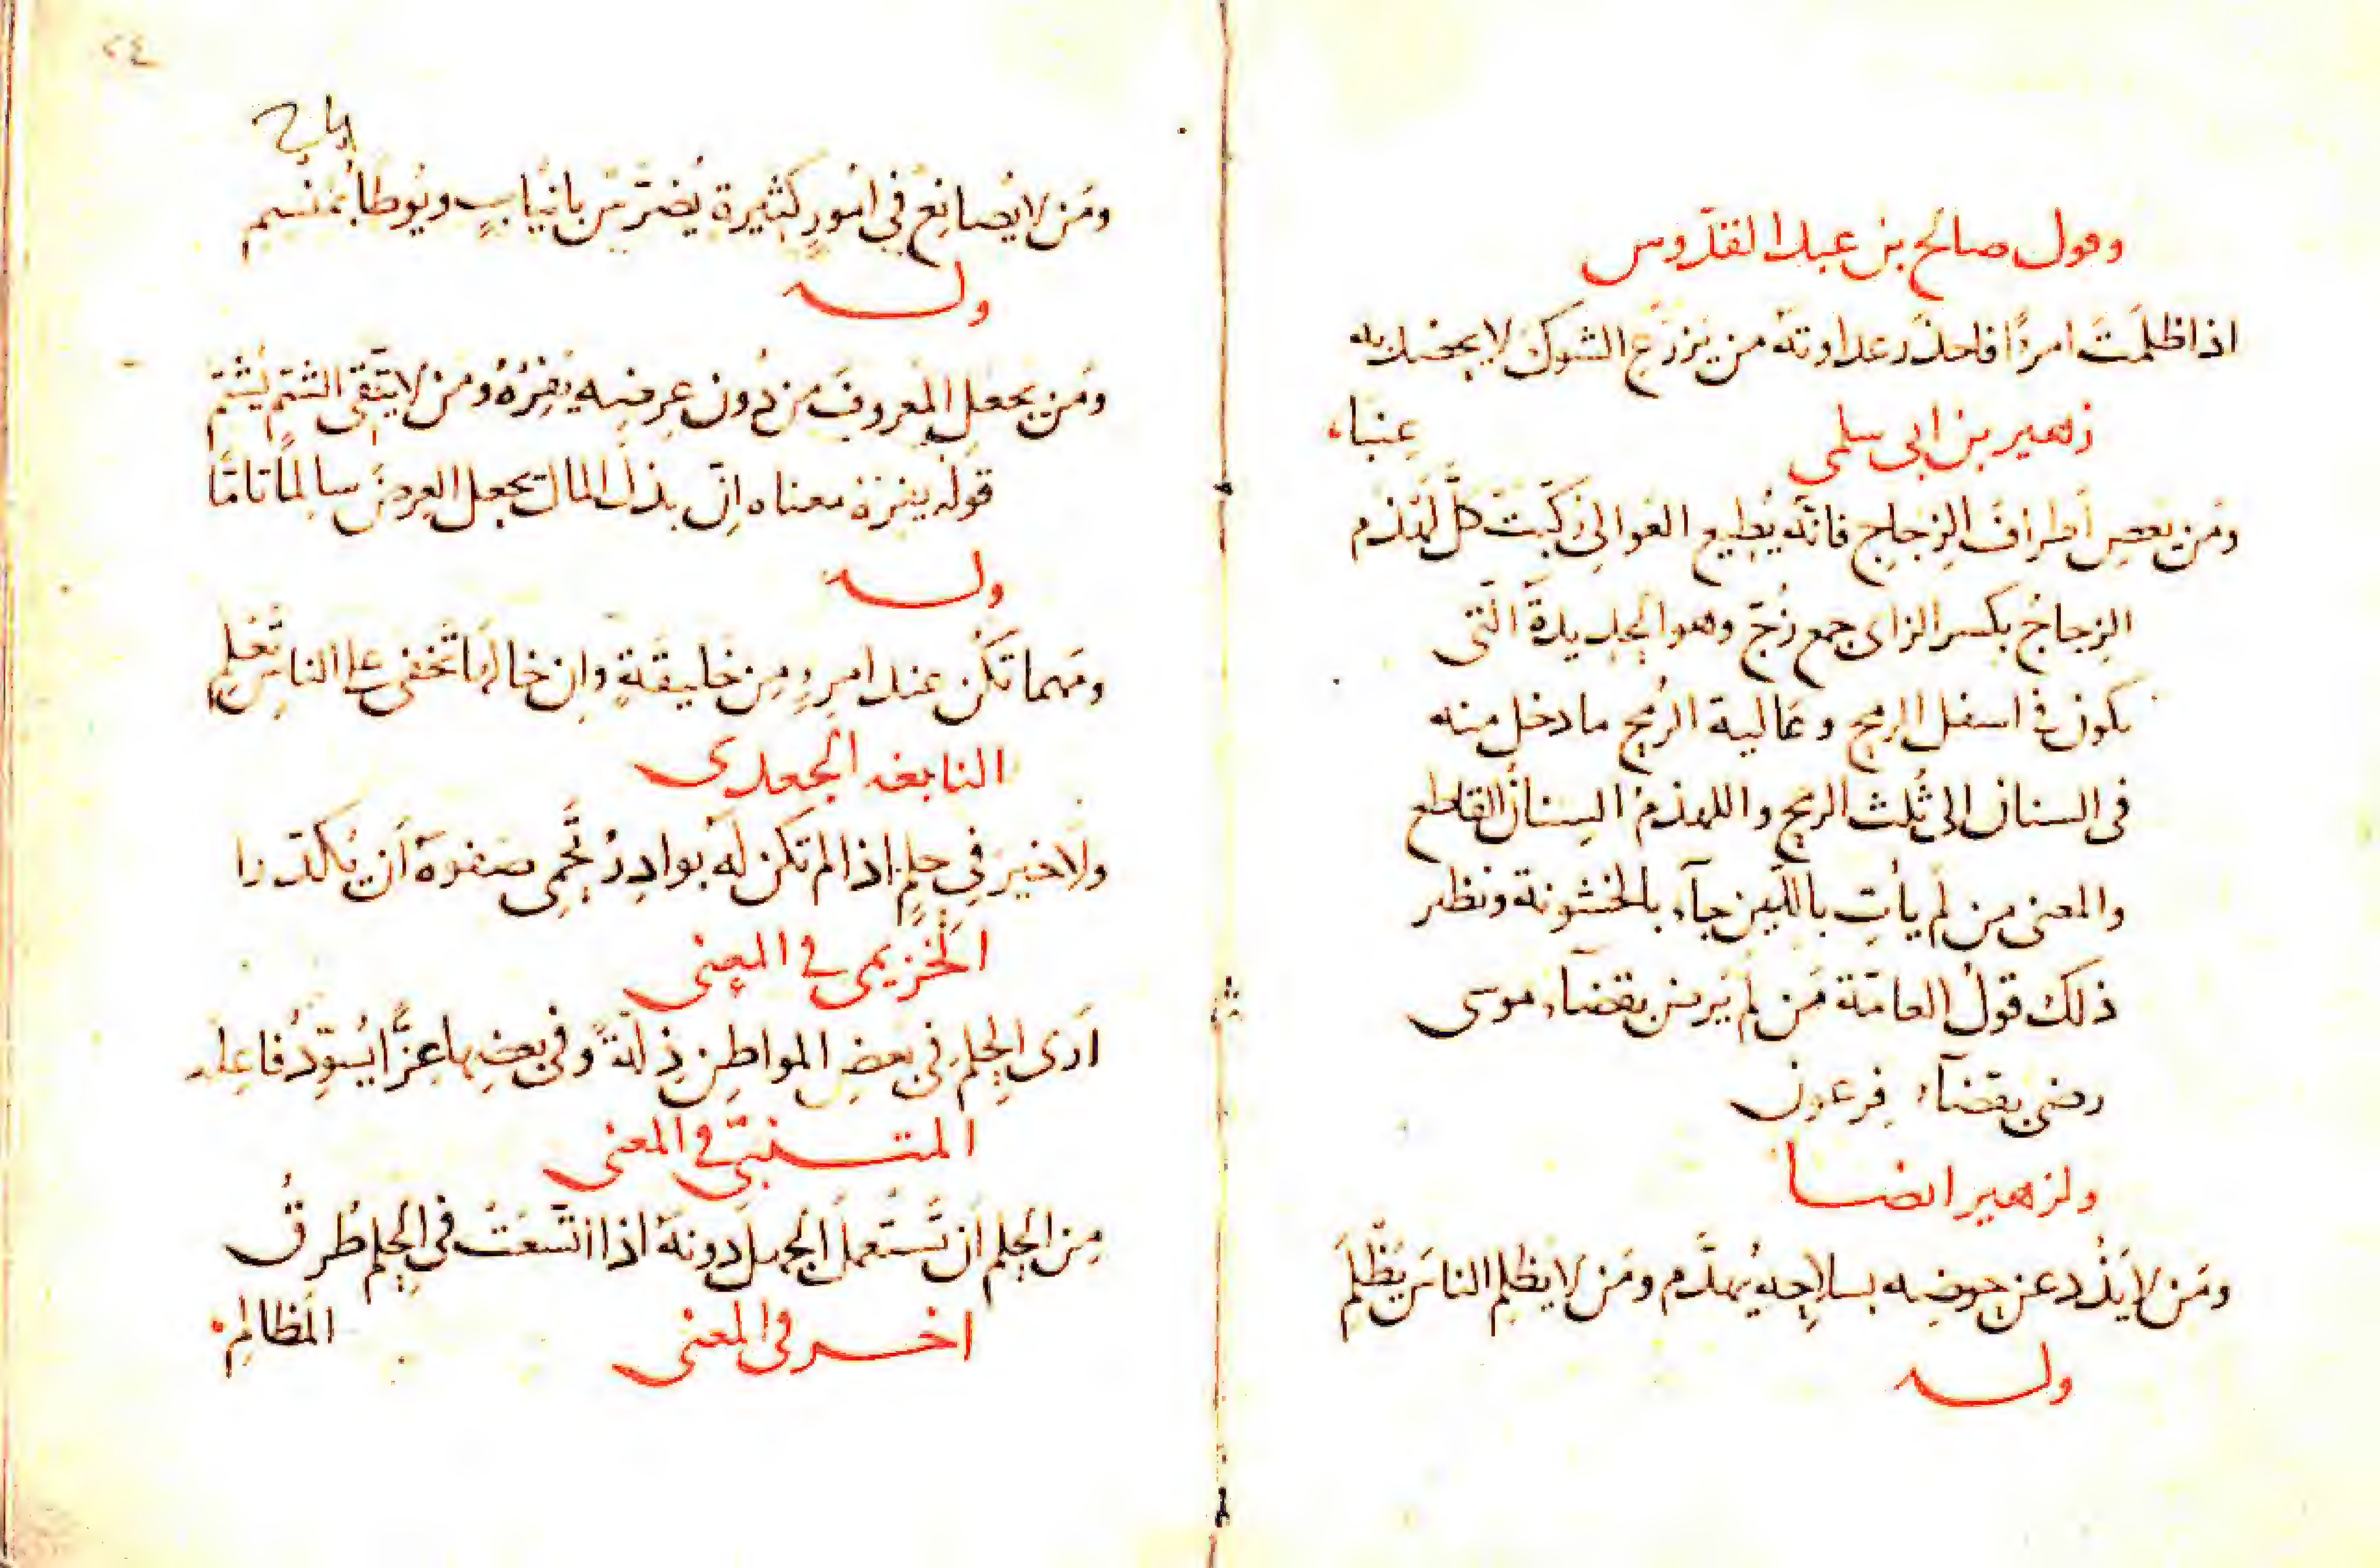 وقول صالح بن عبد القدّوس
اذا ظلمتَ امرءًا فاحذَر عداوته من يَزرَعِ الشوكَ لا يحصد به
عِنَبا
زهير بن ابى سلمى
ومَن يعصِ أطرافَ الزِجاجِ فانّه يُطيع العَوالى رُكّبَتْ كلَّ لَهْذَم
الزِجاجُ بكسر الزاى جمع زُجّ وهو الحديدةُ الّتى
تكون فى اسفل الرمح وعَالية الرُمح ما دخل منه
فى السنان الى ثُلث الرمح واللهذم السِنانُ القاطع
والمعنى من لم يأتِ باللّين جآء بالخشونة ونظير
ذلك قولُ العامّة مَن لم يَرضَ بقضآء موسى
رضى بقضآء فِرعون
ولزهير ايضا
ومَن لا يَذُد عن حوضِه بسلاحِه يُهدَّم ومَن لا يظلِم الناسَ يُظلَم
وله
٢٤
ومَن لا يُصانِع فى امُورٍ كثيرة يُضَرَّس بانيابٍ ويُوطأ بمَنسِم
وله
ومَن يجعلِ المعروفَ من دُون عِرضِه يَفِرْهُ ومن لا يتّقى الشتمَ يُشتَمِ
قولُه يفره معناه اِنّ بذلَ المال يجعل العِرضَ سالمًا تامًّا
وله
ومَهما تكُن عند امرِءٍ مِن خَليقَةٍ وان خالَها تَخفى على الناسِ تُعْلَمِ
النابغه الجعدى
ولا خيرَ فى حِلمٍ اذا لم تكن لَه بوادِرُ تَحمِى صَفوَهُ أن يُكدَّرا
الخُزيمى فى المعنى
ارَى الحِلمَ فى بعضِ المواطِنِ ذِلّةً وفى بعضِها عِزًّا يُسوِّدُ فاعِله
المتنبّى فى المعنى
مِن الحِلمِ أن تَستَعملَ الجهلَ دونهُ اذا اتّسَعَتْ فى الحِلمِ طُرقُ
المَظالِمِ
اخر فى المعنى